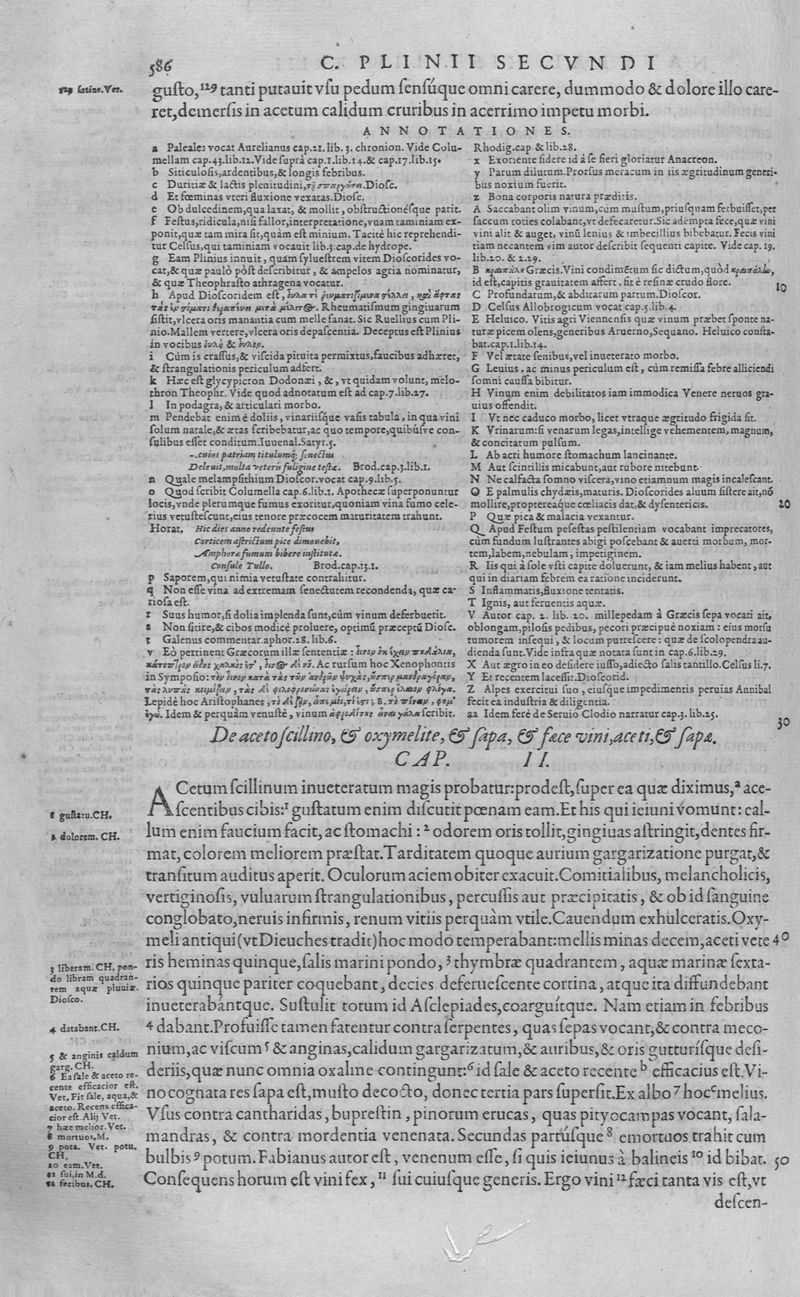 586
C. PLINII SECVNDI
129 satius. Vet.
gusto,¹²⁹ tanti putauit vsu pedum sensúque omni carere, dummodo & dolore illo care-
ret, demersis in acetum calidum cruribus in acerrimo impetu morbi.
ANNOTATIONES.
a Paleales vocat Aurelianus cap.21. lib. 3. chronion. Vide Colu-
mellam cap.43.lib.12. Vide suprà cap.1.lib.14.& cap.17.lib.15.
b Siticulosis,ardentibus,& longis febribus.
c Duritiæ & lactis plenitudini, Diosc.
d Et fœminas vteri fluxione vexatas. Diosc.
e Ob dulcedinem,qua laxat, & mollit, obstructionésque parit.
f Festus,ridicula,nisi fallor,interpretatione,vuam taminiam ex-
ponit,quæ tam mira sit,quàm est minium. Tacitè hîc reprehendi-
tur Celsus,qui taminiam vocauit lib.3.cap.de hydrope.
g Eam Plinius innuit, quam syluestrem vitem Dioscorides vo-
cat,& quæ paulò pòst describitur, & ampelos agria nominatur,
& quæ Theophrasto athragena vocatur.
h Apud Dioscoridem est,
Rheumatismum gingiuarum
sistit,vlcera oris manantia cum melle sanat. Sic Ruellius cum Pli-
nio. Mallem vertere,vlcera oris depascentia. Deceptus est Plinius
in vocibus &
i Cùm is crassus,& viscida pituita permixtus,faucibus adhæret,
& strangulationis periculum adfert.
k Hæc est glycypicron Dodonæi, &, vt quidam volunt, melo-
thron Theophr. Vide quod adnotatum est ad cap.7.lib.27.
l In podagra,& articulari morbo.
m Pendebat enim è doliis, vinariísque vasis tabula, in qua vini
solum natale,& ætas scribebatur,ac quo tempore,quibúsve con-
sulibus esset conditum. Iuuenal. Satyr.5.
-cuius patriam titulumq; senectus
Deleuit,multa veteris fuligine testæ. Brod.cap.3.lib.1.
n Quale melampsithium Dioscor.vocat cap.9.lib.5.
o Quod scribit Columella cap.6.lib.1. Apothecæ superponuntur
locis,vnde plerumque fumus exoritur,quoniam vina fumo cele-
rius vetustescunt,eius tenore præcocem maturitatem trahunt.
Horat. Hic dies anno redeunte festus
Corticem astrictum pice dimouebit,
Amphoræ fumum bibere institutæ.
Consule Tullo. Brod.cap.13.1.
p Saporem,qui nimia vetustate contrahitur.
q Non esse vina ad extremam senectutem recondenda, quæ ca-
riosa est.
r Suus humor,si dolia implenda sunt,cùm vinum deferbuerit.
s Non sitire,& cibos modicè proluere, optimū præceptū Diosc.
t Galenus commentar.aphor.18.lib.6.
v Eò pertinent Græcorum illæ sententiæ :
Ac rursum hoc Xenophontis
in Symposio:
Lepidè hoc Aristophanes,
Idem & perquàm venustè, vinum scribit.
Rhodig.cap.& lib.28.
x Exoriente sidere id à se fieri gloriatur Anacreon.
y Parum dilutum. Prorsus meracum in iis ægritudinum generi-
bus noxium fuerit.
z Bona corporis natura præditis.
A Saccabant olim vinum,cùm mustum,priusquam ferbuisset,per
saccum toties colabant,vt defecaretur. Sic adempta fece,quæ vini
vini alit & auget, vinū lenius & imbecillius bibebatur. Fecis vini
etiam necantem vim autor describit sequenti capite. Vide cap. 19.
lib.20. & 2.29.
B Græcis. Vini condimētum sic dictum,quòd
id est,capitis grauitatem affert. fit è resinæ crudo flore.
C Profundarum,& abditarum partum. Dioscor.
D Celsus Allobrogicum vocat cap.5.lib.4.
E Heluico. Vitis agri Viennensis quæ vinum præbet sponte na-
turæ picem olens,generibus Aruerno,Sequano. Heluico consta-
bat.cap.1.lib.14.
F Vel ætate senibus,vel inueterato morbo.
G Leuius, ac minus periculum est, cùm remissa febre alliciendi
somni causa bibitur.
H Vinum enim debilitatos iam immodica Venere neruos gra-
uius offendit.
I Vt nec caduco morbo, licet vtraque ægritudo frigida sit.
K Vrinarum:si venarum legas,intellige vehementem,magnum,
& concitatum pulsum.
L Ab acri humore stomachum lancinante.
M Aut scintillis micabunt,aut rubore nitebunt.
N Ne calfacta somno viscera,vino etiamnum magis incalescant.
O E palmulis chydæis,maturis. Dioscorides aluum sistere ait,nō
mollire,proptereáque cœliacis dat,& dysentericis.
P Quæ pica & malacia vexantur.
Q Apud Festum pesestas pestilentiam vocabant imprecatores,
cùm fundum lustrantes abigi poscebant & auerti morbum, mor-
tem,labem,nebulam, impetiginem.
R Iis qui à sole vsti capite doluerunt, & iam melius habent, aut
qui in diariam febrem ea ratione inciderunt.
S Inflammatis,fluxione tentatis.
T Ignis, aut feruentis aquæ.
V Autor cap. 2. lib. 20. millepedam à Græcis sepa vocari ait,
oblongam,pilosis pedibus, pecori præcipuè noxiam : eius morsu
tumorem insequi, & locum putrescere : quæ de scolopendra au-
dienda sunt. Vide infra quæ notata sunt in cap.6.lib.29.
X Aut ægro in eo desidere iusso,adiecto salis tantillo. Celsus li.7.
Y Et recentem lacessit. Dioscorid.
Z Alpes exercitui suo, eiusque impedimentis peruias Annibal
fecit ea industria & diligentia.
aa Idem ferè de Seruio Clodio narratur cap.3.lib.25.
10
20
30
De aceto scillino, & oxymelite, & sapa, & fæce vini, aceti, & sapæ.
CAP. II.
ACetum scillinum inueteratum magis probatur:prodest,super ea quæ diximus,ª ace-
scentibus cibis:¹ gustatum enim discutit pœnam eam. Et his qui ieiuni vomunt: cal-
lum enim faucium facit, ac stomachi : ² odorem oris tollit,gingiuas astringit,dentes fir-
mat, colorem meliorem præstat. Tarditatem quoque aurium gargarizatione purgat,&
transitum auditus aperit. Oculorum aciem obiter exacuit. Comitialibus, melancholicis,
vertiginosis, vuluarum strangulationibus, percussis aut præcipitatis, & ob id sanguine
conglobato,neruis infirmis, renum vitiis perquàm vtile. Cauendum exhulceratis. Oxy-
meli antiqui (vt Dieuches tradit) hoc modo temperabant:mellis minas decem,aceti vete 40
ris heminas quinque,salis marini pondo, ³ thymbræ quadrantem, aquæ marinæ sexta-
rios quinque pariter coquebant, decies deferuescente cortina, atque ita diffundebant
inueterabántque. Sustulit totum id Asclepiades,coarguítque. Nam etiam in febribus
⁴ dabant. Profuisse tamen fatentur contra serpentes, quas sepas vocant,& contra meco-
nium,ac viscum ⁵ & anginas,calidum gargarizatum,& auribus,& oris gutturísque desi-
deriis,quæ nunc omnia oxalme contingunt:⁶ id sale & aceto recente ᵇ efficacius est. Vi-
no cognata res sapa est,musto decocto, donec tertia pars supersit. Ex albo ⁷ hoc ᶜ melius.
Vsus contra cantharidas, buprestin, pinorum erucas, quas pityocampas vocant, sala-
mandras, & contra mordentia venenata. Secundas partúsque ⁸ emortuos trahit cum
bulbis ⁹ potum. Fabianus autor est, venenum esse, si quis ieiunus à balineis ¹⁰ id bibat. 50
Consequens horum est vini fex, ¹¹ sui cuiusque generis. Ergo vini ¹² fæci tanta vis est,vt
descen-
1 gustatu.CH.
2 dolorem. CH.
3 liberam. CH. pon-
do libram quadran-
tem aquæ pluuiæ.
Diosco.
4 databant.CH.
5 & anginis calidum
garg. CH.
6 Ea sale & aceto re-
cente efficacior est.
Vet. Fit sale, aqua,&
aceto. Recens effica-
cior est. Alij Vet.
7 hæc melior. Vet.
8 mortuos.M.
9 pota. Vet. potu.
CH.
10 eam. Vet.
11 sui,in M.d.
12 fecibus. CH.